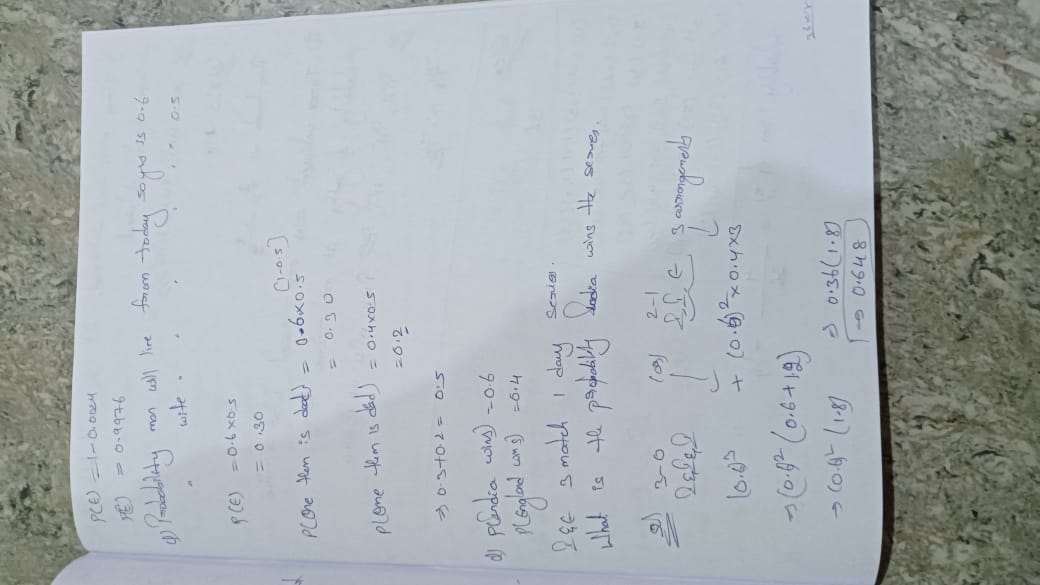 P(E) = 1-0.0024
P(E) = 0.9976
Q) Probability man will live from today 50 yrs is 0.6
" wife " " " " " 0.5
P(E) = 0.6x0.5
= 0.30
[1-0.5]
P(one them is dead) = 0.6x0.5
= 0.30
P(one them is dead) = 0.4x0.5
= 0.2
⇒ 0.3+0.2 = 0.5
Q) P(India wins) = 0.6
P(England wins) = 0.4
I & E 3 match 1 day series.
What is the probability India wins the series.
3-0 (or) 2-1
I I E 3 arrangements
(0.6)³ + (0.6)² x 0.4x3
⇒ (0.6)² (0.6+1.2)
⇒ (0.6)² (1.8) ⇒ 0.36(1.8)
⇒ 0.648